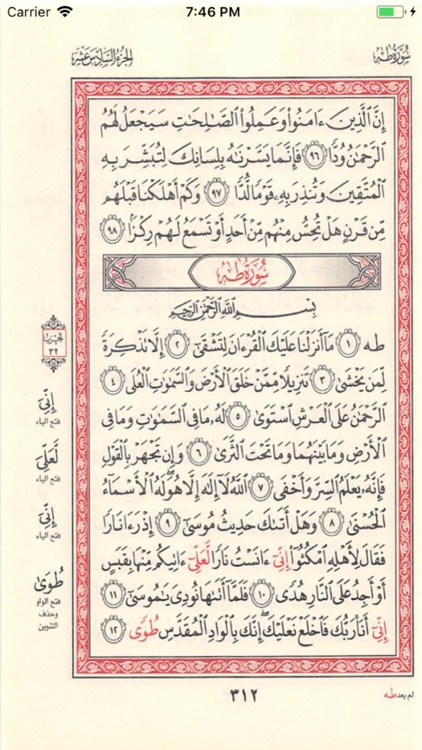 Carrier 7:46 PM
سُورَةُ طه
الجزء السادس عشر
إِنَّ ٱلَّذِينَ ءَامَنُوا۟ وَعَمِلُوا۟ ٱلصَّـٰلِحَـٰتِ سَيَجْعَلُ لَهُمُ
ٱلرَّحْمَـٰنُ وُدًّا ٩٦ فَإِنَّمَا يَسَّرْنَـٰهُ بِلِسَانِكَ لِتُبَشِّرَ بِهِ
ٱلْمُتَّقِينَ وَتُنذِرَ بِهِۦ قَوْمًا لُّدًّا ٩٧ وَكَمْ أَهْلَكْنَا قَبْلَهُم
مِّن قَرْنٍ هَلْ تُحِسُّ مِنْهُم مِّنْ أَحَدٍ أَوْ تَسْمَعُ لَهُمْ رِكْزًۢا ٩٨
سُورَةُ طه
بِسْمِ ٱللَّهِ ٱلرَّحْمَـٰنِ ٱلرَّحِيمِ
طه ١ مَآ أَنزَلْنَا عَلَيْكَ ٱلْقُرْءَانَ لِتَشْقَىٰٓ ٢ إِلَّا تَذْكِرَةً
لِّمَن يَخْشَىٰ ٣ تَنزِيلًا مِّمَّنْ خَلَقَ ٱلْأَرْضَ وَٱلسَّمَـٰوَٰتِ ٱلْعُلَى ٤
ٱلرَّحْمَـٰنُ عَلَى ٱلْعَرْشِ ٱسْتَوَىٰ ٥ لَهُۥ مَا فِى ٱلسَّمَـٰوَٰتِ وَمَا فِى
ٱلْأَرْضِ وَمَا بَيْنَهُمَا وَمَا تَحْتَ ٱلثَّرَىٰ ٦ وَإِن تَجْهَرْ بِٱلْقَوْلِ
فَإِنَّهُۥ يَعْلَمُ ٱلسِّرَّ وَأَخْفَى ٧ ٱللَّهُ لَآ إِلَـٰهَ إِلَّا هُوَ لَهُ ٱلْأَسْمَآءُ
ٱلْحُسْنَىٰ ٨ وَهَلْ أَتَىٰكَ حَدِيثُ مُوسَىٰٓ ٩ إِذْ رَءَا نَارًا
فَقَالَ لِأَهْلِهِ ٱمْكُثُوٓا۟ إِنِّىَ ءَانَسْتُ نَارًا لَّعَلِّىَ ءَاتِيكُم مِّنْهَا بِقَبَسٍ
أَوْ أَجِدُ عَلَى ٱلنَّارِ هُدًى ١٠ فَلَمَّآ أَتَىٰهَا نُودِىَ يَـٰمُوسَىٰٓ ١١
إِنِّىَ أَنَا۠ رَبُّكَ فَٱخْلَعْ نَعْلَيْكَ إِنَّكَ بِٱلْوَادِ ٱلْمُقَدَّسِ طُوَىٰ ١٢
الحزب
٣٢
إِنِّىَ
فتح الياء
لَّعَلِّىَ
فتح الياء
إِنِّىَ
فتح الياء
طُوَىٰ
فتح الواو
وحذف
التنوين
٣١٢
لم يعد طه